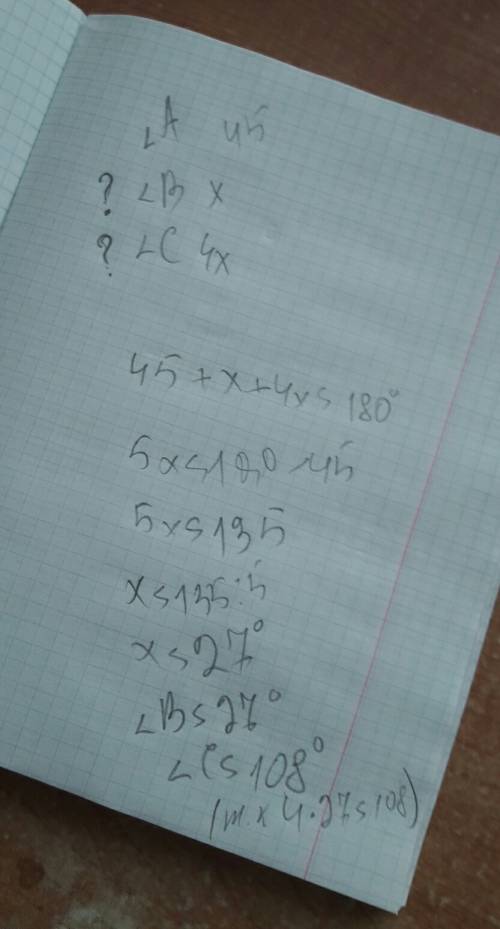 ∠A 45
? ∠B x
? ∠C 4x
45 + x + 4x = 180°
5x = 180 - 45
5x = 135
x = 135 : 5
x = 27°
∠B = 27°
∠C = 108°
(т.к 4·27 = 108)